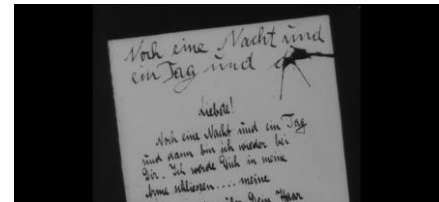 Noch eine Nacht und
ein Tag und d
Liebste!
Noch eine Nacht und ein Tag
und dann bin ich wieder bei
Dir. Ich werde Dich in meine
Arme schliessen.... meine
über Dein Haar